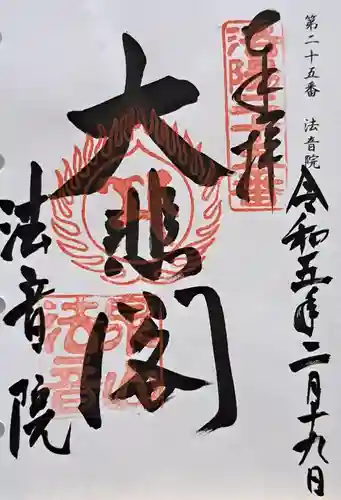 第二十五番 法音院
奉拝
令和五年二月十九日
大悲閣
法音院